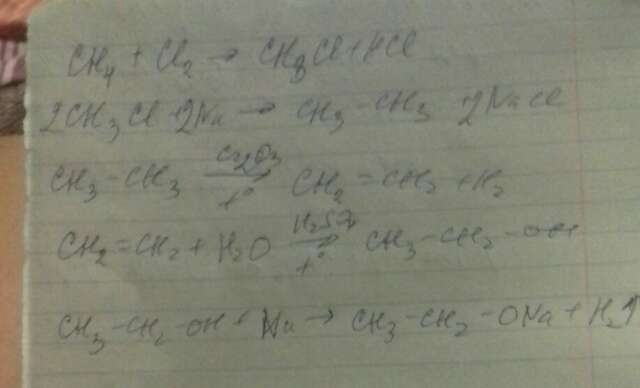 CH₄ + Cl₂ → CH₃Cl + HCl
2CH₃Cl + 2Na → CH₃–CH₃ + 2NaCl
CH₃–CH₃ →(Cr₂O₃, t°) CH₂=CH₂ + H₂
CH₂=CH₂ + H₂O →(H₂SO₄, t°) CH₃–CH₂–OH
CH₃–CH₂–OH + Na → CH₃–CH₂–ONa + H₂↑